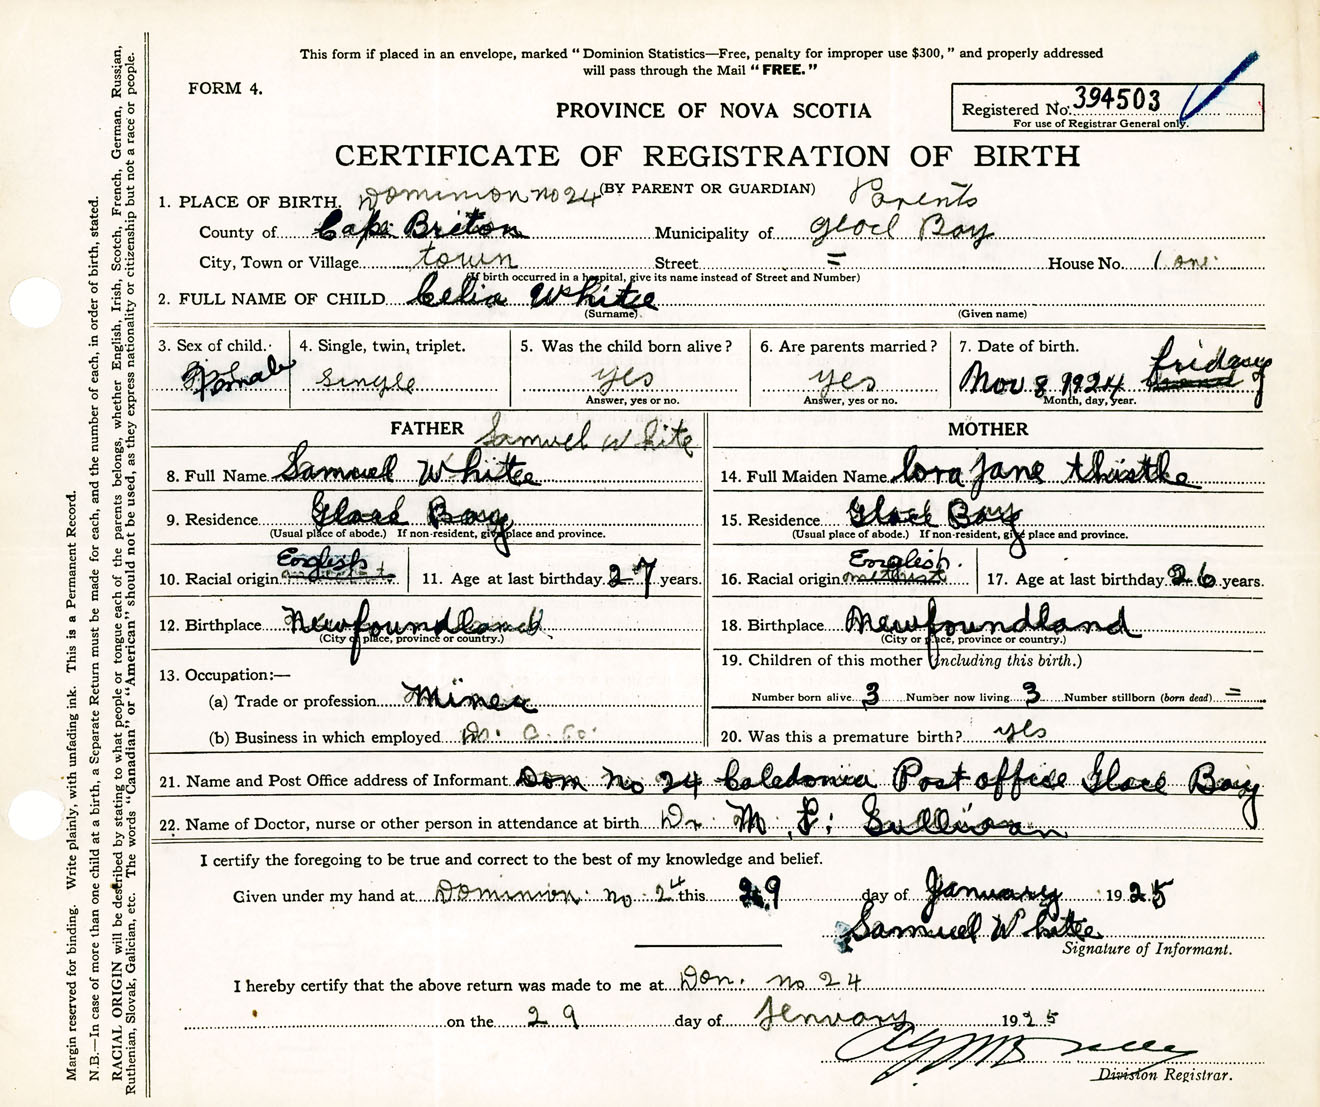 This form if placed in an envelope, marked "Dominion Statistics—Free, penalty for improper use $300," and properly addressed
will pass through the Mail "FREE."
FORM 4.
PROVINCE OF NOVA SCOTIA
Registered No. 394503
For use of Registrar General only.
CERTIFICATE OF REGISTRATION OF BIRTH
(BY PARENT OR GUARDIAN)
1. PLACE OF BIRTH. Dominion no 24 Parents
County of Cape Briton Municipality of Glacl Bay
City, Town or Village town Street = House No. 1 one
(If birth occurred in a hospital, give its name instead of Street and Number)
2. FULL NAME OF CHILD Celia White
(Surname) (Given name)
3. Sex of child. 4. Single, twin, triplet. 5. Was the child born alive? 6. Are parents married? 7. Date of birth. friday
Female single yes yes Nov 8 1924
Answer, yes or no. Answer, yes or no. Month, day, year.
FATHER Samuel White MOTHER
8. Full Name Samuel White 14. Full Maiden Name lora Jane thistle
9. Residence Glacl Bay 15. Residence Glacl Bay
(Usual place of abode.) If non-resident, give place and province. (Usual place of abode.) If non-resident, give place and province.
English English.
10. Racial origin 11. Age at last birthday 27 years. 16. Racial origin 17. Age at last birthday 26 years.
12. Birthplace Newfoundland 18. Birthplace Newfoundland
(City or place, province or country.) (City or place, province or country.)
13. Occupation:— 19. Children of this mother (including this birth.)
(a) Trade or profession Miner Number born alive 3 Number now living 3 Number stillborn (born dead) =
(b) Business in which employed Co. 20. Was this a premature birth? yes
21. Name and Post Office address of Informant Dom No 24 Caledonia Post office Glace Bay
22. Name of Doctor, nurse or other person in attendance at birth Dr. M. F. Sullivan
I certify the foregoing to be true and correct to the best of my knowledge and belief.
Given under my hand at Dominion no 24 this 29 day of January 1925
Samuel White
Signature of Informant.
I hereby certify that the above return was made to me at Dom. no 24
on the 29 day of Jenuary 1925
Division Registrar.
Margin reserved for binding. Write plainly, with unfading ink. This is a Permanent Record.
N.B.—In case of more than one child at a birth, a Separate Return must be made for each, and the number of each, in order of birth, stated.
RACIAL ORIGIN will be described by stating to what people or tongue each of the parents belongs, whether English, Irish, Scotch, French, German, Russian,
Ruthenian, Slovak, Galician, etc. The words "Canadian" or "American" should not be used, as they express nationality or citizenship but not a race or people.